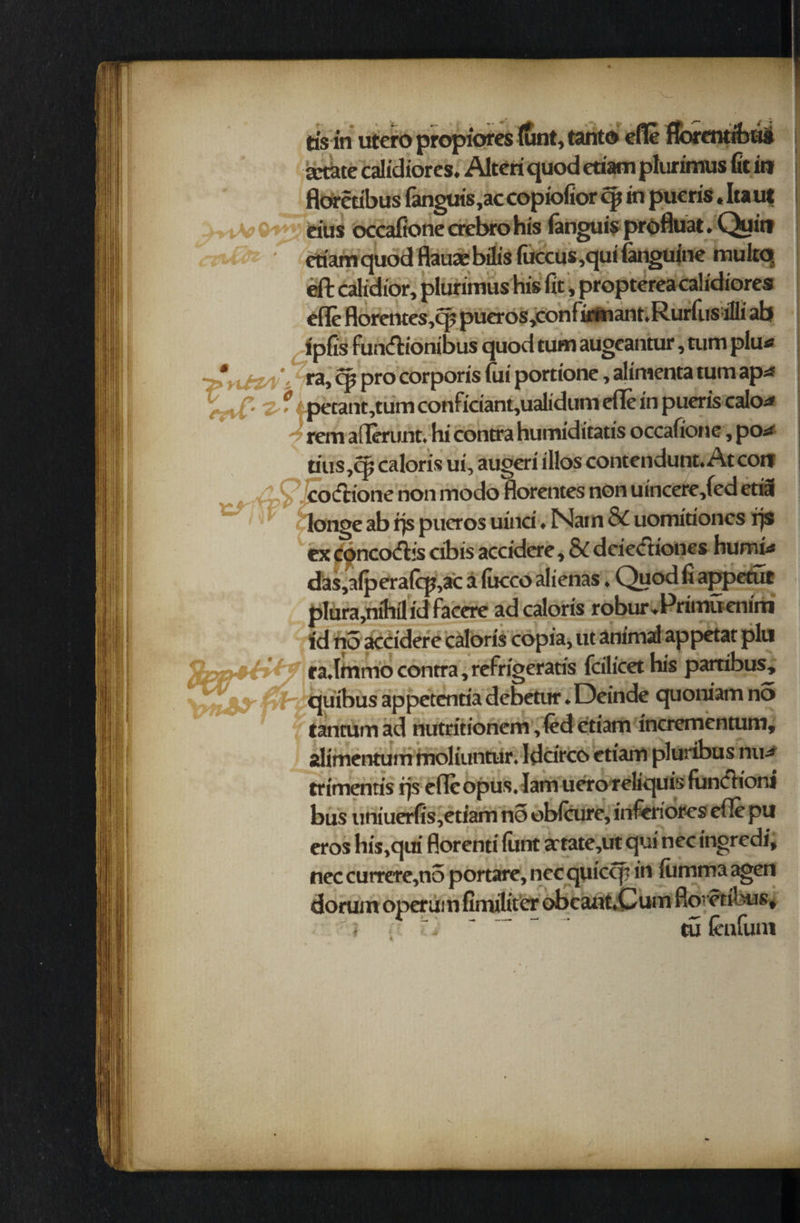 tis in utero propiores ſunt, tanto eſſe florentibus
ætate calidiores. Alteri quod etiam plurimus fit in
florētibus ſanguis, ac copioſior ꝙ in pueris. Itaut
eius occaſione crebro his ſanguis profluat. Quin
etiam quod flauæ bilis ſuccus, qui ſanguine multo
eſt calidior, plurimus his fit, propterea calidiores
eſſe florentes, ꝙ pueros, confirmant. Rurſus illi ab
ipſis functionibus quod tum augeantur, tum plu-
ra, ꝙ pro corporis ſui portione, alimenta tum ap-
petant, tum conficiant, ualidum eſſe in pueris calo-
rem aſſerunt. hi contra humiditatis occaſione, po-
tius, ꝙ caloris ui, augeri illos contendunt. At con
coctione non modo florentes non uincere, ſed etiā
longe ab ijs pueros uinci. Nam & uomitiones ijs
ex concoctis cibis accidere, & deiectiones humi-
das, aſperaſqꝫ, ac a ſucco alienas. Quod ſi appetūt
plura, nihil id facere ad caloris robur. Primū enim
id nō accidere caloris copia, ut animal appetat plu
ra. Immo contra, refrigeratis ſcilicet his partibus,
quibus appetentia debetur. Deinde quoniam nō
tantum ad nutritionem, ſed etiam incrementum,
alimentum moliuntur. Idcirco etiam pluribus nu-
trimentis ijs eſſe opus. Iam uero reliquis functioni
bus uniuerſis, etiam nō obſcure, inferiores eſſe pu
eros his, qui florenti ſunt ætate, ut qui nec ingredi,
nec currere, nō portare, nec quicꝙ in ſumma agen
dorum operum ſimiliter obeant. Cum florētibus,
tū ſenſum